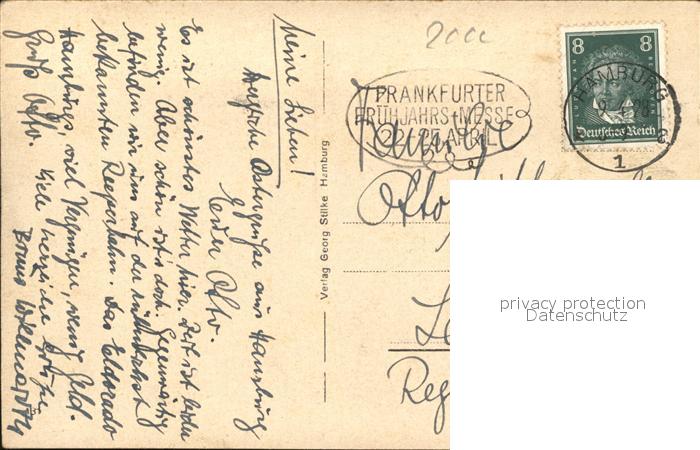 Meine Lieben!
Herzliche Ostergrüße aus Hamburg
Euer Otto.
Es ist schönstes Wetter hier. Zeit ist leider
wenig. Aber schön ist's doch. Gegenwärtig
befinden wir uns auf der
bekannten Reeperbahn. Das Eldorado
Hamburgs, viel Vergnügen, wenig Geld.
Gruß Otto. Viele herzliche Grüße
Bruno
Verlag Georg Stilke Hamburg
2000
FRANKFURTER
FRÜHJAHRS-MESSE
APRIL
8 8
Deutsches Reich
HAMBURG
1
Familie
Otto
L
Reg
privacy protection
Datenschutz